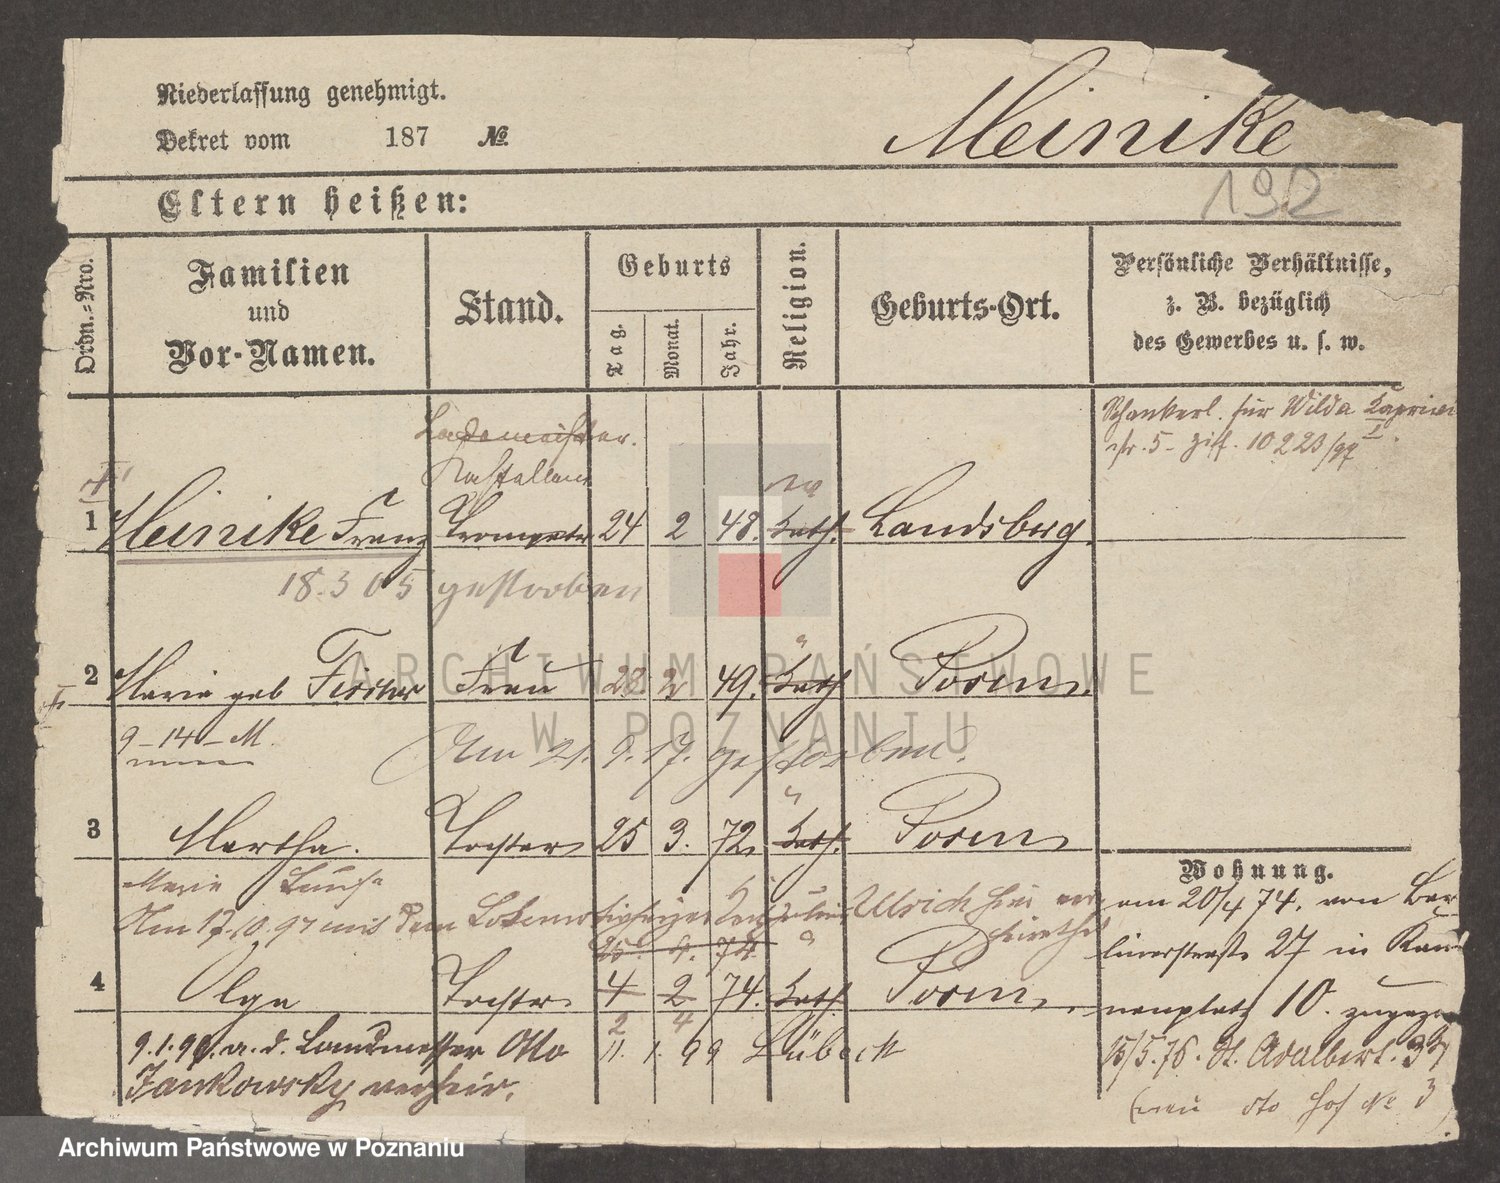 Niederlassung genehmigt.
Dekret vom 187 №
Meinike
192
Eltern heißen:
Ordn.-Nro.
Familien
und
Vor-Namen.
Stand.
Geburts
Tag.
Monat.
Jahr.
Religion.
Geburts-Ort.
Persönliche Verhältnisse,
z. B. bezüglich
des Gewerbes u. s. w.
Schankerl. für Wilda
str. 5 - Ziff. 10223/97
Lademeister.
Kastellan
ev
1 Meinike Franz Trompeter 24 2 48. kath. Landsberg.
18.3 05 gestorben
2 Marie geb Frau 28 2 49. kath. Posen.
9-14-M.
Am 21. 9. 17. gestorben.
3 Martha. Tochter 25 3. 72. kath. Posen
Marie
Am 17.10.97 mit dem Ulrich hier ver-
heirathet
25. 9. 74
4 Olga Tochter 4 2 74. kath. Posen
2 4
9.1.99. a. d. Landmesser Otto 11. 1. 99 Lübeck
Jankowsky verheir.
Wohnung.
am 20/4 74. von Ber-
linerstraße 27 in Kano-
nenplatz 10. zugezogen
15/5.76. St. Adalbert. 39
3
ARCHIWUM PAŃSTWOWE
W POZNANIU
Archiwum Państwowe w Poznaniu